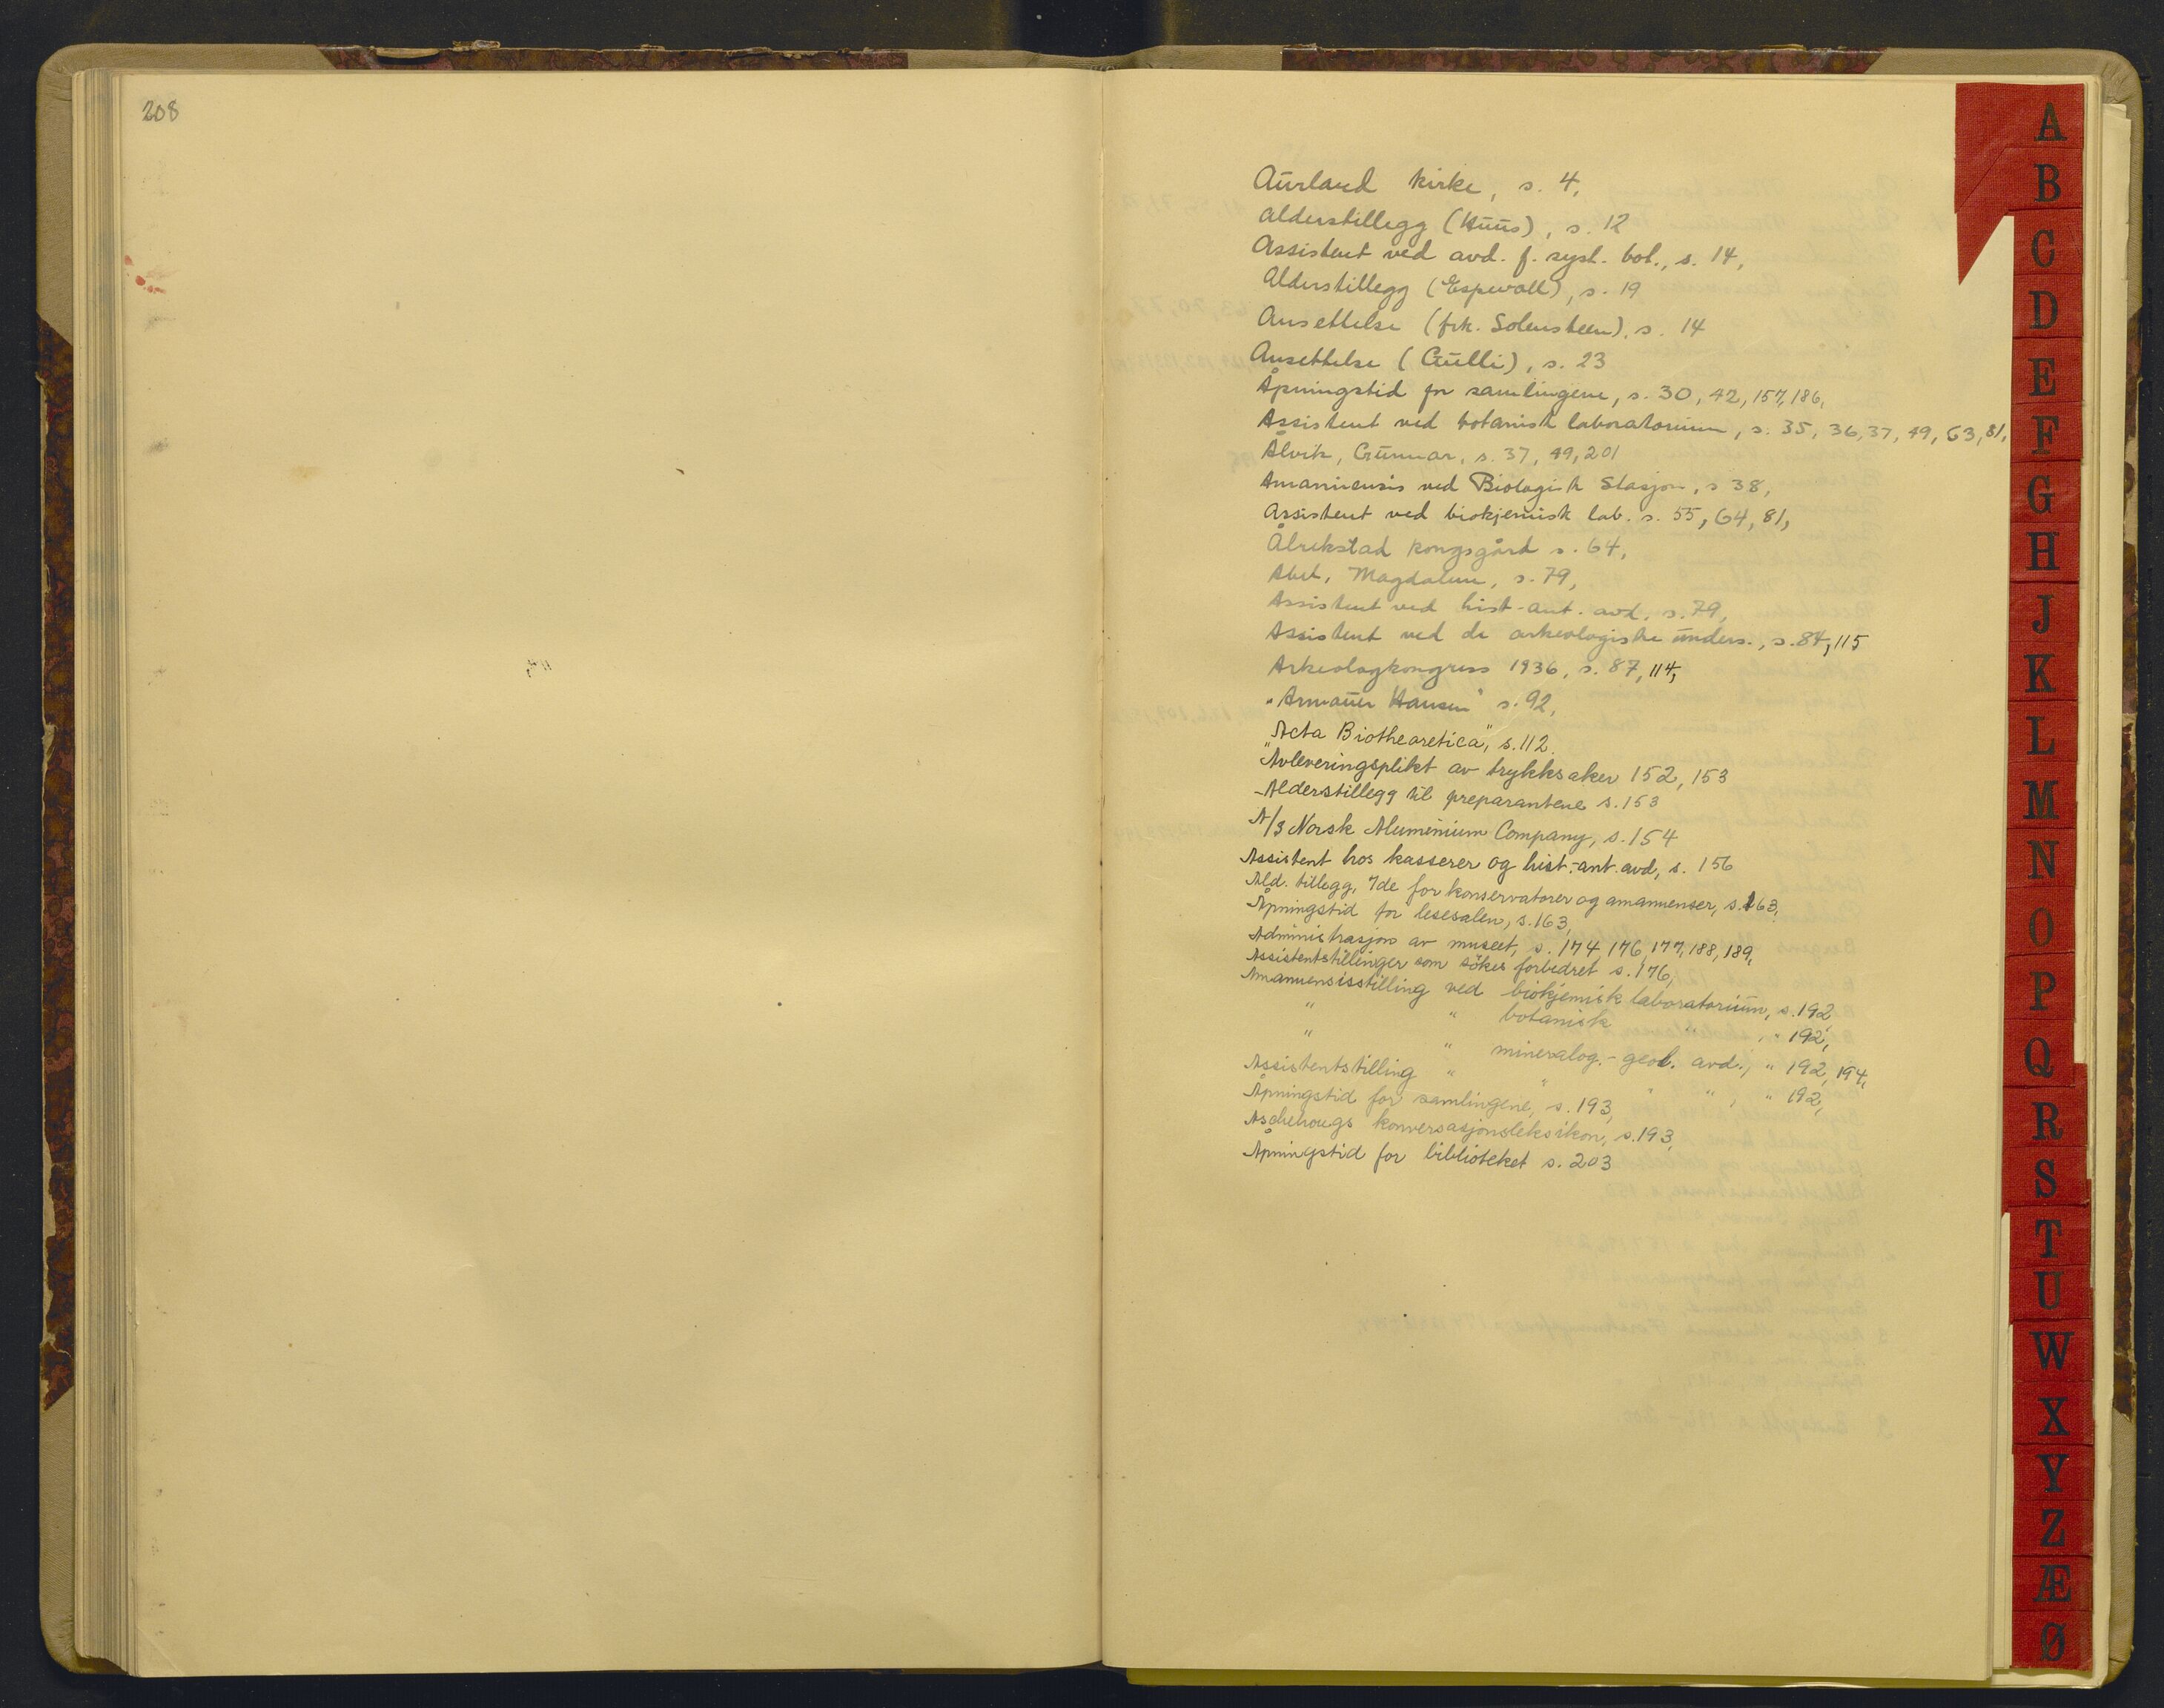 208
Aurland kirke, s. 4,
Alderstillegg (Huus), s. 12
Assistent ved avd. f. syst. bot., s. 14,
Alderstillegg (Espevoll), s. 19
Ansettelse (frk. Solensteen), s. 14
Ansettelse (Gulli), s. 23
Åpningstid for samlingene, s. 30, 42, 157, 186,
Assistent ved botanisk laboratorium, s. 35, 36, 37, 49, 63, 81,
Ålvik, Gunnar, s. 37, 49, 201
Amanuensis ved Biologisk Stasjon, s 38,
Assistent ved biokjemisk lab. s. 55, 64, 81,
Ålrekstad kongsgård s. 64,
Abel, Magdalene, s. 79,
Assistent ved hist-ant. avd. s. 79,
Assistent ved de arkeologiske unders., s. 84, 115
Arkeologkongress 1936, s. 87, 114,
"Armauer Hansen" s. 92,
"Acta Biotheoretica", s. 112.
Avleveringsplikt av trykksaker 152, 153
-Alderstillegg til preparantene s. 153
A/S Norsk Aluminium Company, s. 154
Assistent hos kasserer og hist.-ant. avd, s. 156
Ald. tillegg, 7de for konservatorer og amanuenser, s. 163,
Åpningstid for lesesalen, s. 163,
Administrasjon av museet, s. 174, 176, 177, 188, 189,
Assistentstillinger som søkes forbedret s. 176,
Amanuensisstilling ved biokjemisk laboratorium, s. 192
" " botanisk " , " 192,
" " mineralog.-geol. avd., " 192, 194,
Assistentstilling " " " " , " 192,
Åpningstid for samlingene, s. 193,
Aschehougs konversasjonsleksikon, s. 193,
Åpningstid for biblioteket s. 203
A
B
C
D
E
F
G
H
J
K
L
M
N
O
P
Q
R
S
T
U
W
X
Y
Z
Æ
Ø